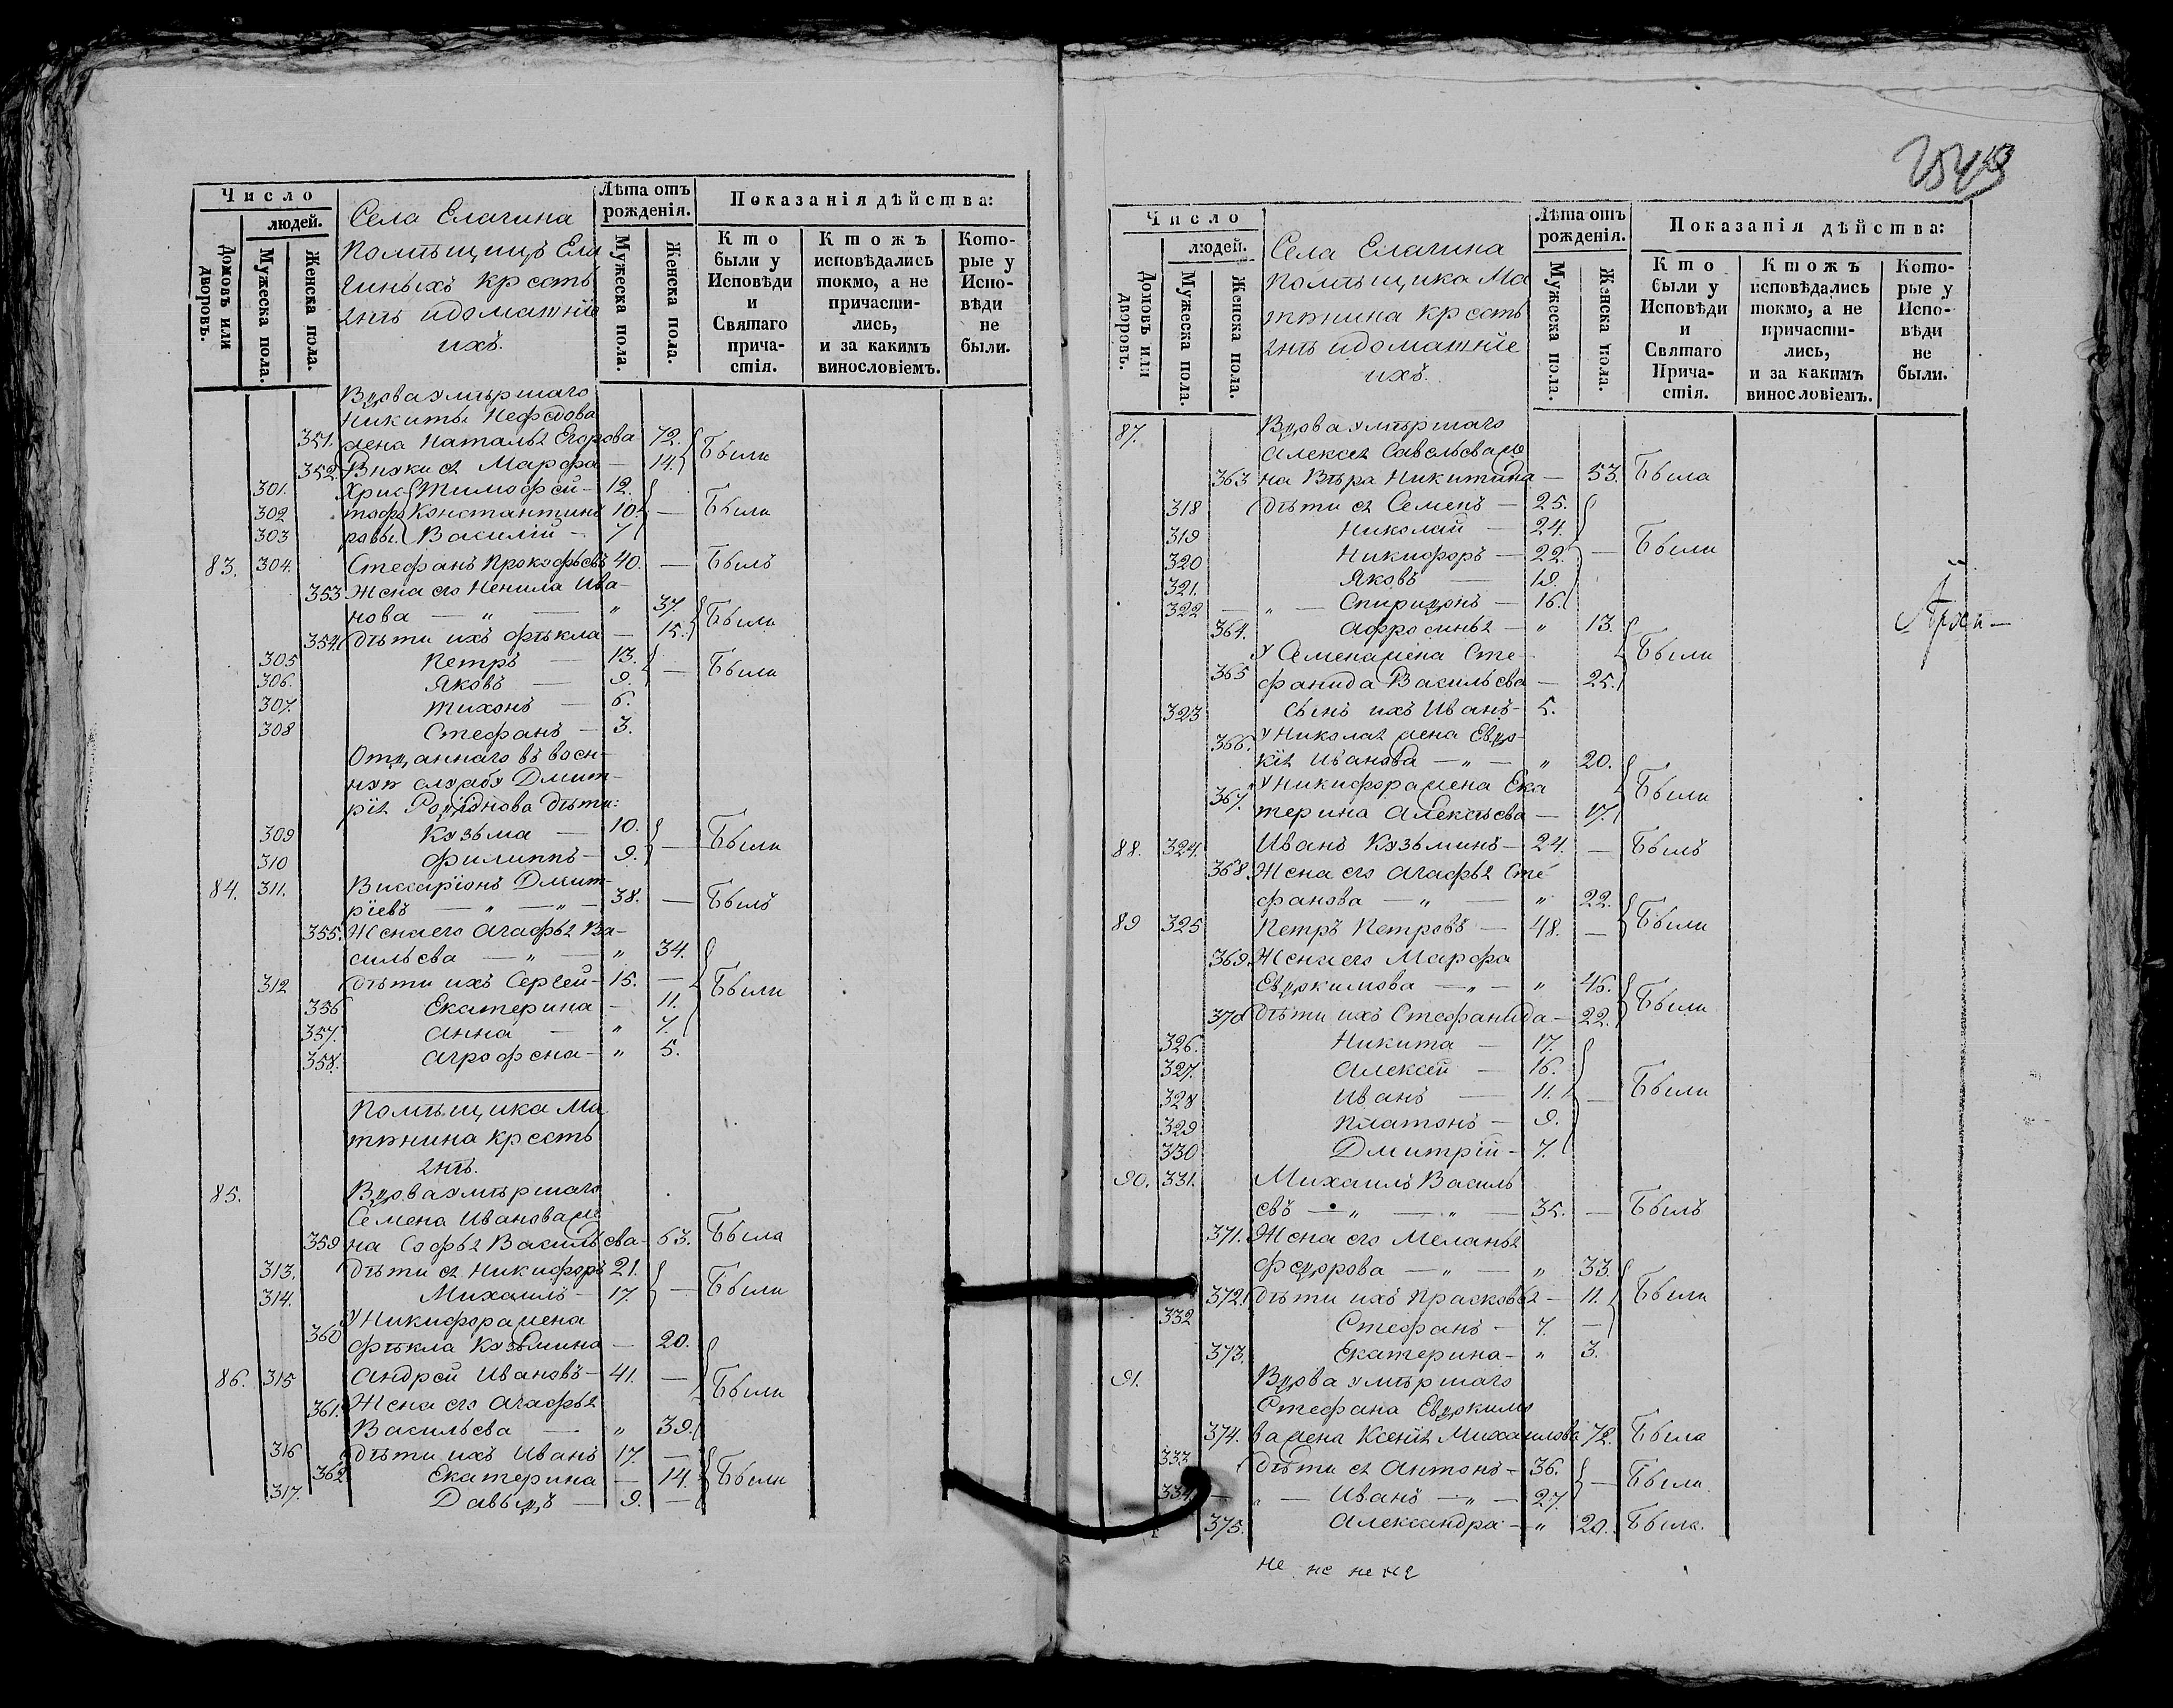 Число
людей.
Домовъ или дворовъ.
Мужеска пола.
Женска пола.
Села Елагина
Помѣщицъ Ела
гиныхъ кресть
янъ идомашніе
ихъ.
Лѣта отъ рожденія.
Мужеска пола.
Женска пола.
Показанія дѣйства:
Кто были у Исповѣди и Святаго прича-стія.
Ктожъ исповѣдались токмо, а не причасти-лись, и за какимъ винословіемъ.
Кото-рые у Испо-вѣди не были.
Вдоваумѣршаго
Никиты Нефедова
351. жена Наталья Егорова 72. Были
352. Внуки ея Марфа — 14.
301. Хрис Тимофей — 12.
302 тофо Константинъ 10 — Были
303 ровы. Василій — 7
83. 304. Стефанъ Прокофьевъ 40. — Былъ
353 Жена его Ненила Ива-
нова — „ — „ 37. Были
354. дѣти ихъ Ѳекла — 15.
305 Петръ — 13.
306. Яковъ — 9. — Были
307. Тихонъ — 6.
308 Стефанъ — 3.
Отданнаго въ воен-
ную службу Дмит-
рія Родіонова дѣти:
309 Кузьма — 10.
310 Филиппъ — 9. — Были
84. 311. Виссаріонъ Дмит-
ріевъ — „ — „ — 38. — Былъ
355. Жена его Агафья Ва-
сильева — „ — „ 34.
312 дѣти ихъ Сергей — 15. — Были
356 Екатерина — 11.
357. Анна — „ 7.
358. Агрофена — „ 5.
Помѣщика Ма
тюнина кресть
янъ.
85. Вдоваумѣршаго
Семена Иванова же
359 на Софья Васильева — 53. Была
313. дѣти ея Никифоръ 21.
314. Михаилъ — 17. — Были
У Никифора жена
360 Ѳекла Кузьмина — 20.
86. 315 Андрей Ивановъ — 41. — Были
361. Жена его Агафья
Васильева — „ 39.
316 дѣти ихъ Иванъ 17. —
362 Екатерина — 14. Были
317. Давыдъ — 9. —
Число
людей.
Домовъ или дворовъ.
Мужеска пола.
Женска пола.
Села Елагина
Помѣщика Ма
тюнина кресть
янъ идомашніе
ихъ.
Лѣта отъ рожденія.
Мужеска пола.
Женска пола.
Показанія дѣйства:
Кто были у Исповѣди и Святаго Прича-стія.
Ктожъ исповѣдались токмо, а не причасти-лись, и за какимъ винословіемъ.
Кото-рые у Испо-вѣди не были.
87. Вдоваумѣршаго
Алексея Савельева же
363 на Вѣра Никитина — 53. Была
318 дѣти ея Семенъ — 25.
319 Николай — 24.
320 Никифоръ — 22. — Были
321. Яковъ — 19.
322 — „ — Спиридонъ — 16.
364. Афросинья — „ 13.
У Семена жена Сте- Были
365 фанида Васильева — 25.
323 Сынъ ихъ Иванъ — 5.
366. У Николая жена Евдо-
кія Иванова — „ — „ 20.
367. У Никифора жена Ека Были
терина Алексѣева — 17.
88. 324. Иванъ Кузьминъ — 24. — Былъ
368. Жена его Агафья Сте
фанова — „ — „ 22.
89 325 Петръ Петровъ — 48. — Были
369. Жена его Марфа
Евдокимова — „ — „ 46.
370 дѣти ихъ Стефанида — 22. Были
326. Никита — 17.
327. Алексей — 16.
328 Иванъ — 11. — Были
329 Платонъ — 9.
330 Дмитрій — 7.
90. 331. Михаилъ Василь
евъ — „ — „ — 35. — Былъ
371. Жена его Меланья
Федорова — „ — „ 33.
372. дѣти ихъ Прасковья — 11. Были
332 Стефанъ — 7. —
373. Екатерина — „ 3.
91. Вдова умѣршаго
Стефана Евдокимо
374. ва жена Ксенія Михаилова 72. Была
333 дѣти ея Антонъ — 36.
334 — „ — Иванъ — „ — 27. — Были
375. Александра — „ 20. Была.
не не не не